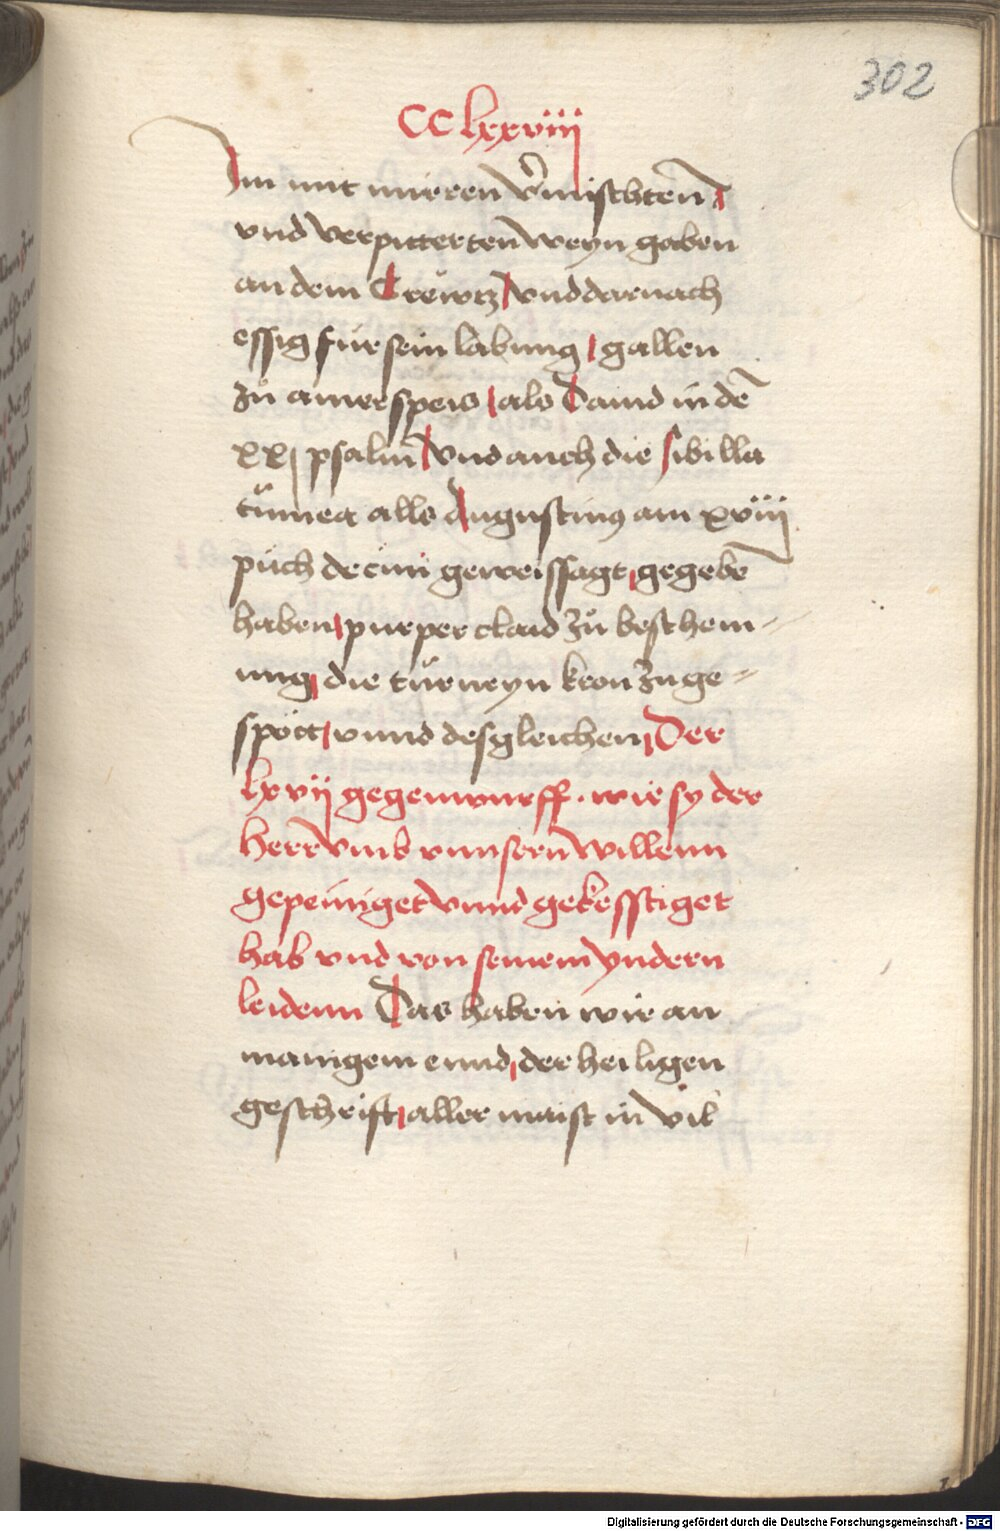 302
CC lxxviii
Im mit mirren v̄mischten
vnd verpitterten weyn gaben
an dem Creẅtz vnd darnach
essig für sein labung gallen
zů ainer speis als Dauid in dē
xxj psalm vnd auch die sibilla
als Augustinus am xviij
půch de ciui geweissagt gegebē
haben purper claid zů beschem-
ung die türneyn kron zu ge-
spött vnnd desgleichen Der
lxvij gegenwurff. wie sy der
herr vmb vnnsern willenn
gepeiniget vnnd gekesstiget
hab vnd von seinem yndern
leidenn Das haben wir an
manigem ennd der heiligen
geschrift aller maist in vil
Digitalisierung gefördert durch die Deutsche Forschungsgemeinschaft - DFG